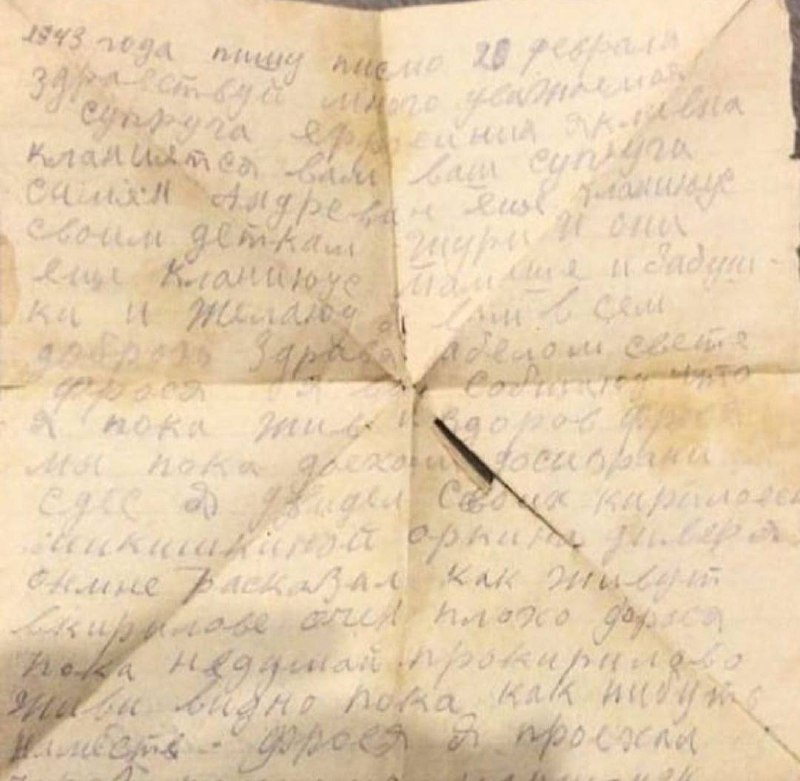 1943 года пишу писмо 20 февраля
Здраствуй много уважаемая
супруга
кланиятся вам ваш супруга
симян Андревич еще кланиюус
своим деткам Шури и они
еще кланиюус мамаше и бабуш-
ки и желаюю вам в сем
доброго здравя набелом свете
фрося я вам собщию что
я пока жив и здоров фрося
мы пока доехали досизрани
сдес я увидел своих кириловски
микишкиной оркина диверя
онмне расказал как живут
вкирилове очен плохо фрося
пока недумай прокирилово
живи видно пока как нибуть
намвсте. фрося я проежал